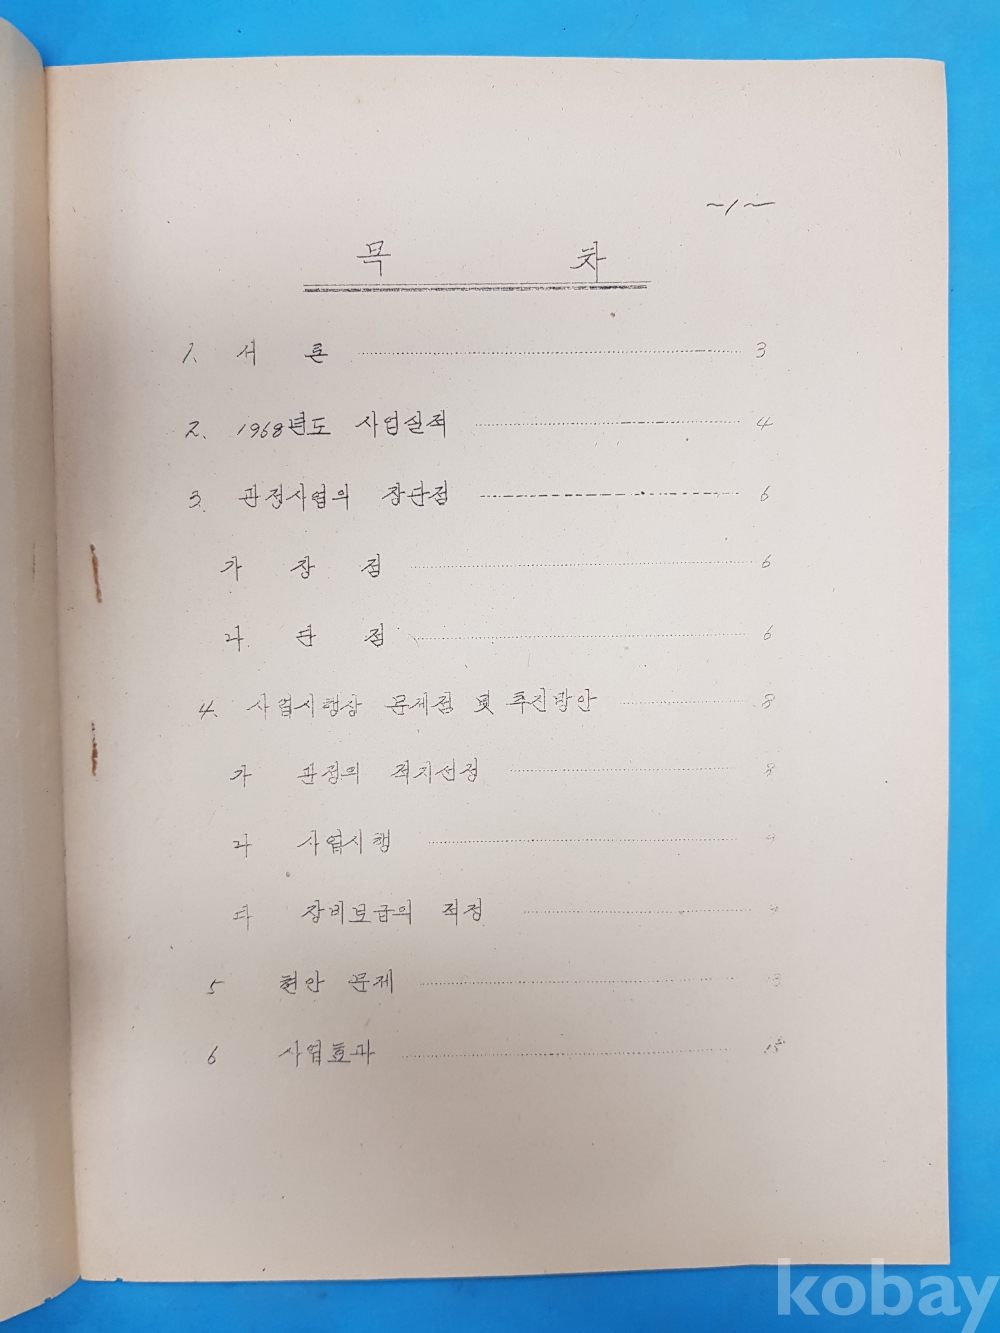 ~1~
목 차
1. 서 론 3
2. 1968년도 사업실적 4
3. 관정사업의 장단점 6
가 장 점 6
나 단 점 6
4. 사업시행상 문제점 및 추진방안 8
가 관정의 적기선정 8
나 사업시행
다 장비보급의 적정
5 현안 문제 13
6 사업효과 15
kobay